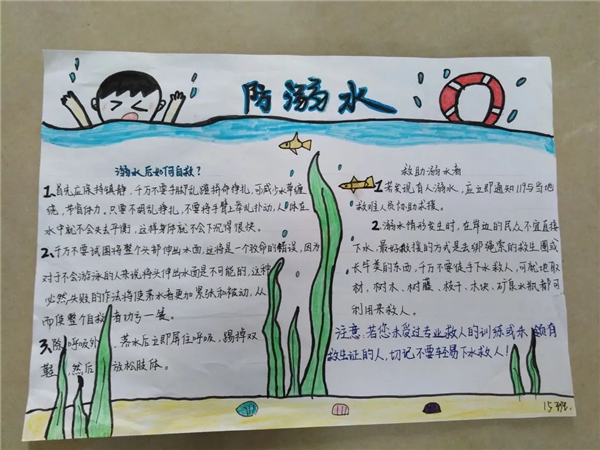 防溺水
溺水后如何自救？
1.首先应保持镇静，千万不要手脚乱蹬拼命挣扎，可减少水草缠
绕，节省体力。只要不胡乱挣扎，不要将手臂上举乱扑动，人体在
水中就不会失去平衡，这样身体就不会下沉得很快。
2.千万不要试图将整个头部伸出水面，这将是一个致命的错误，因为
对于不会游泳的人来说将头伸出水面是不可能的，这种
必然失败的作法将使落水者更加紧张和被动，从
而使整个自救者功亏一篑。
3.除呼吸外，落水后立即屏住呼吸，踢掉双
鞋，然后放松肢体。
救助溺水者
1.若发现有人溺水，应立即通知119与当地
救难人员协助求援。
2.溺水情形发生时，在岸边的民众不宜直接
下水，最好救援的方式是丢绑绳索的救生圈或
长竿类的东西，千万不要徒手下水救人，可就地取
材，树木、树藤、枝干、木块、矿泉水瓶都可
利用来救人。
注意：若您未受过专业救人的训练或未领有
救生证的人，切记不要轻易下水救人！
15班.